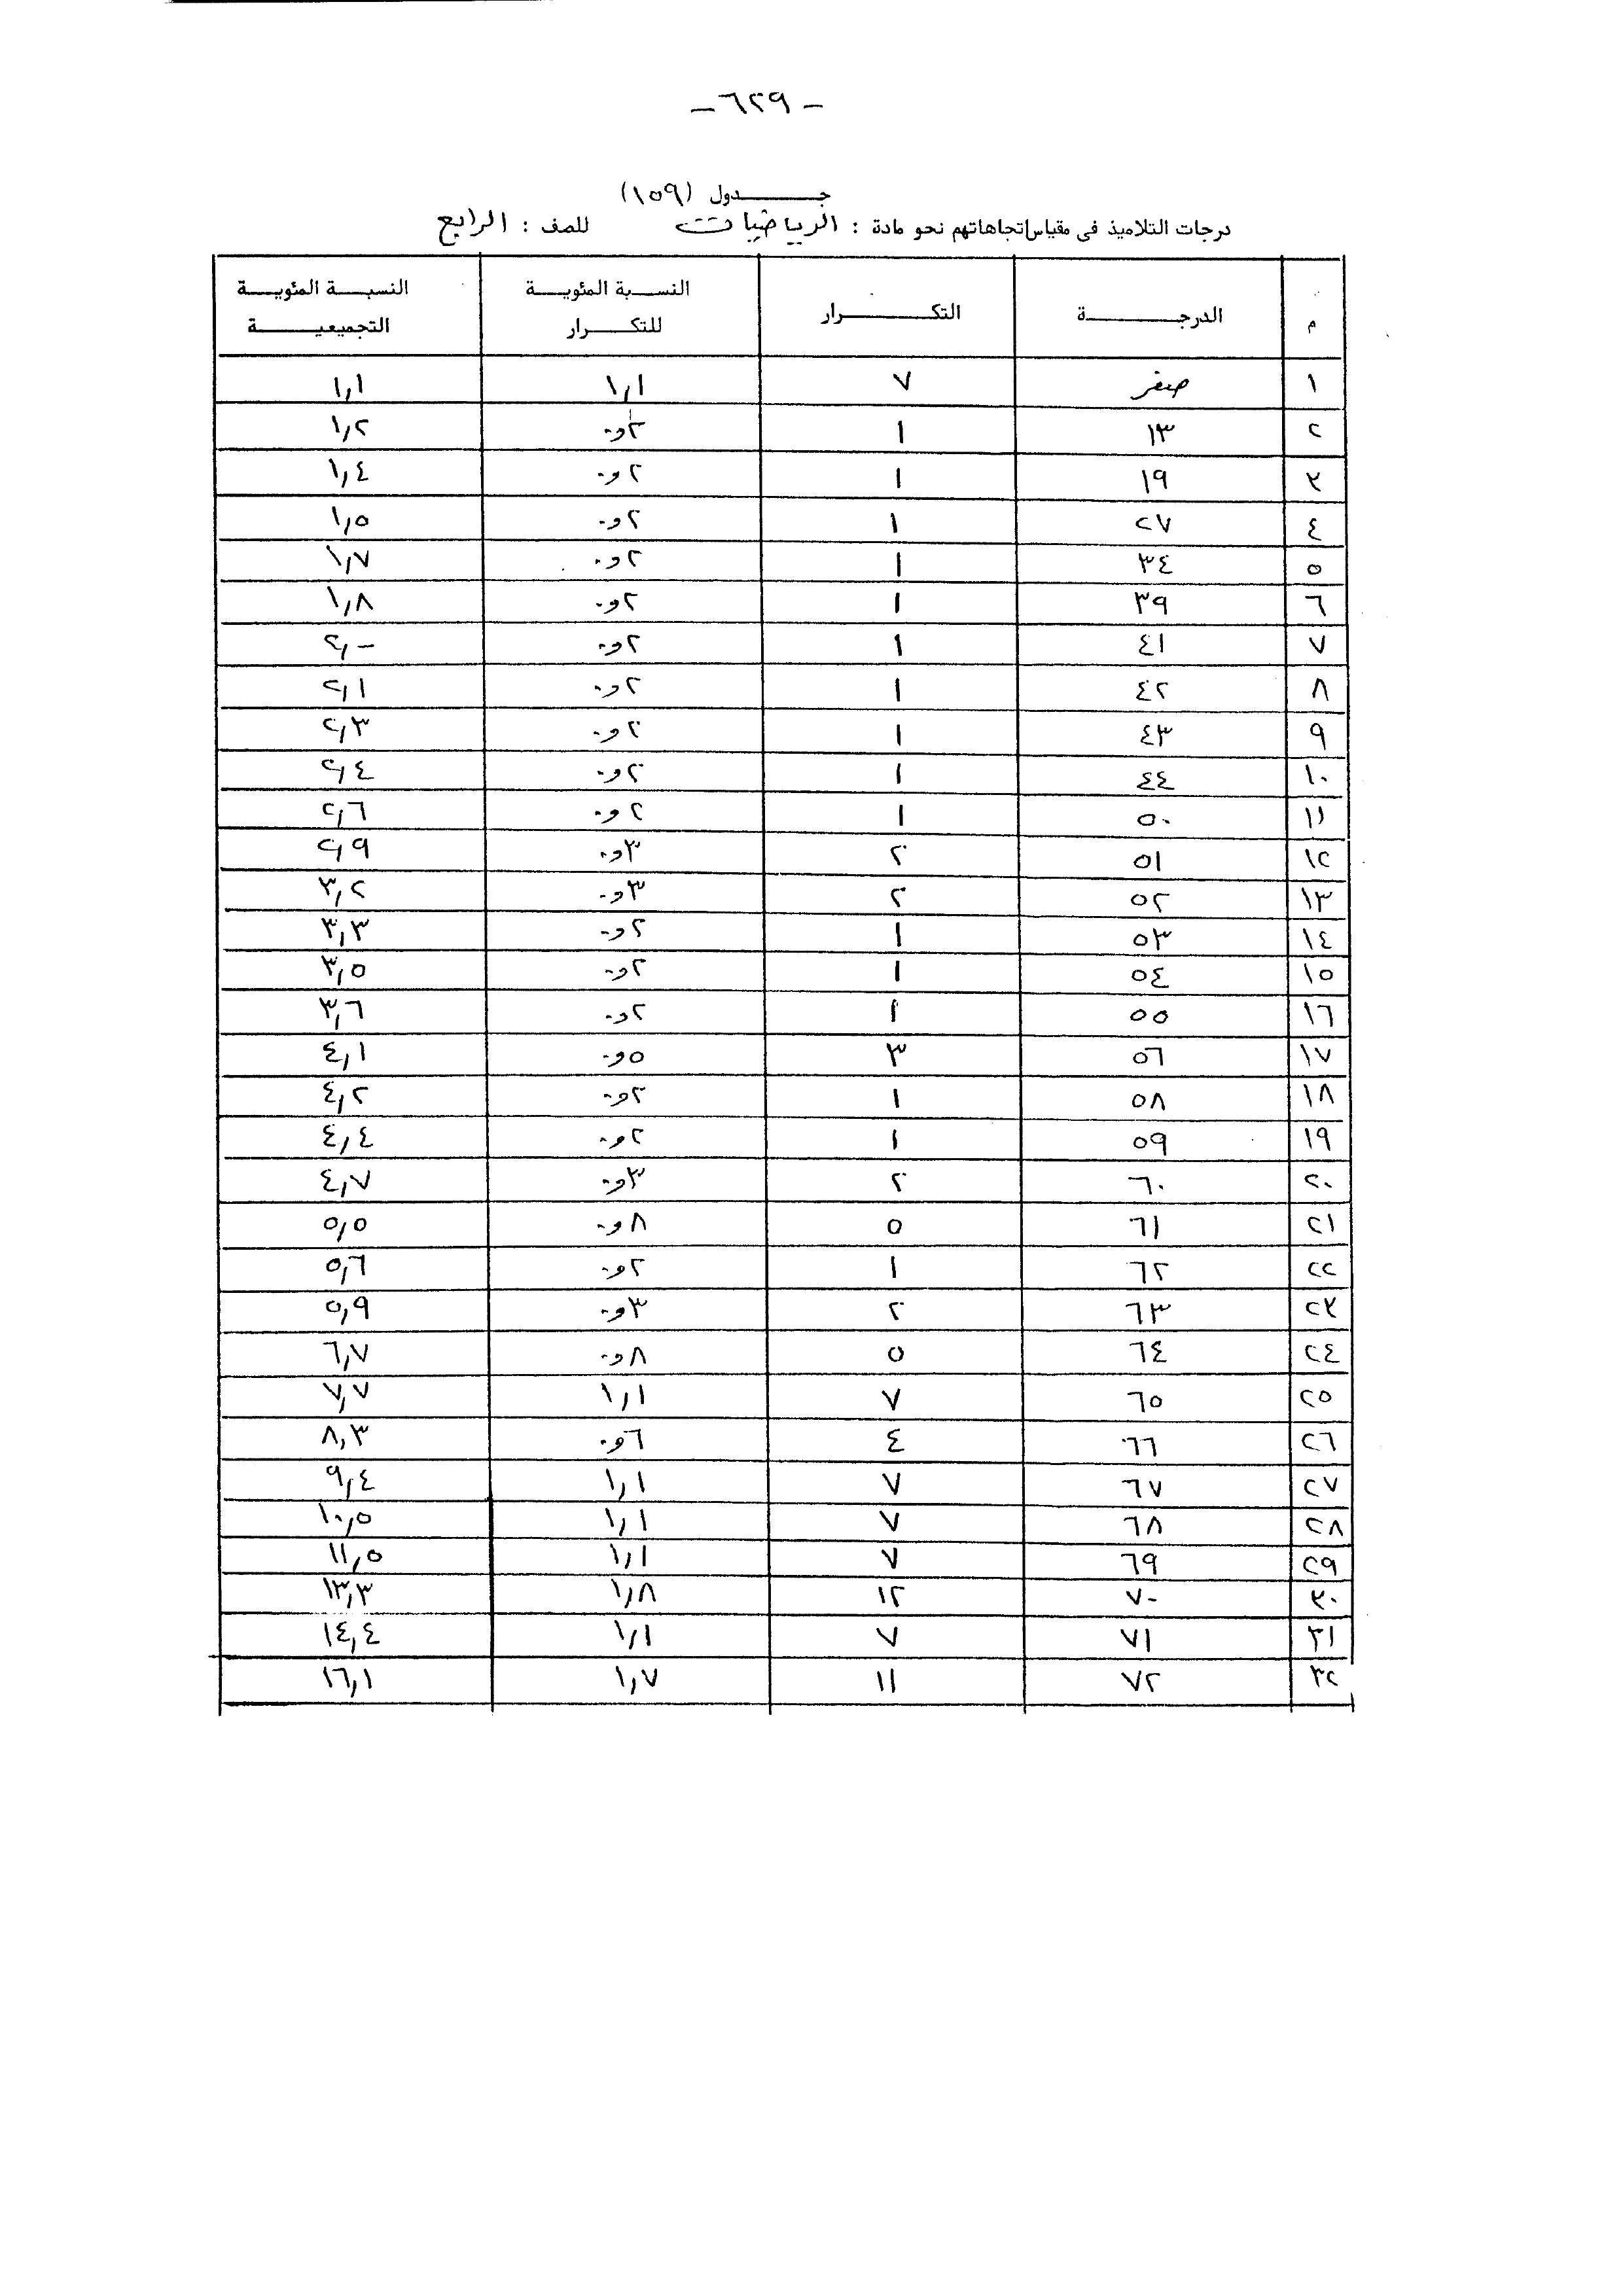 - ٦٢٩ -
جدول (١٥٩)
درجات التلاميذ فى مقياس اتجاهاتهم نحو مادة : الرياضيات للصف : الرابع
م الدرجة التكرار النسبة المئوية للتكرار النسبة المئوية التجميعية
١ صفر ٧ ١,١ ١,١
٢ ١٣ ١ ٢و٠ ١,٢
٣ ١٩ ١ ٢و٠ ١,٤
٤ ٢٧ ١ ٢و٠ ١,٥
٥ ٣٤ ١ ٢و٠ ١,٧
٦ ٣٩ ١ ٢و٠ ١,٨
٧ ٤١ ١ ٢و٠ ٢,٠
٨ ٤٢ ١ ٢و٠ ٢,١
٩ ٤٣ ١ ٢و٠ ٢,٣
١٠ ٤٤ ١ ٢و٠ ٢,٤
١١ ٥٠ ١ ٢و٠ ٢,٦
١٢ ٥١ ٢ ٣و٠ ٢,٩
١٣ ٥٢ ٢ ٣و٠ ٣,٢
١٤ ٥٣ ١ ٢و٠ ٣,٣
١٥ ٥٤ ١ ٢و٠ ٣,٥
١٦ ٥٥ ١ ٢و٠ ٣,٦
١٧ ٥٦ ٣ ٥و٠ ٤,١
١٨ ٥٨ ١ ٢و٠ ٤,٢
١٩ ٥٩ ١ ٢و٠ ٤,٤
٢٠ ٦٠ ٢ ٣و٠ ٤,٧
٢١ ٦١ ٥ ٨و٠ ٥,٥
٢٢ ٦٢ ١ ٢و٠ ٥,٦
٢٣ ٦٣ ٢ ٣و٠ ٥,٩
٢٤ ٦٤ ٥ ٨و٠ ٦,٧
٢٥ ٦٥ ٧ ١,١ ٧,٧
٢٦ ٦٦ ٤ ٦و٠ ٨,٣
٢٧ ٦٧ ٧ ١,١ ٩,٤
٢٨ ٦٨ ٧ ١,١ ١٠,٥
٢٩ ٦٩ ٧ ١,١ ١١,٥
٣٠ ٧٠ ١٢ ١,٨ ١٣,٣
٣١ ٧١ ٧ ١,١ ١٤,٤
٣٢ ٧٢ ١١ ١,٧ ١٦,١